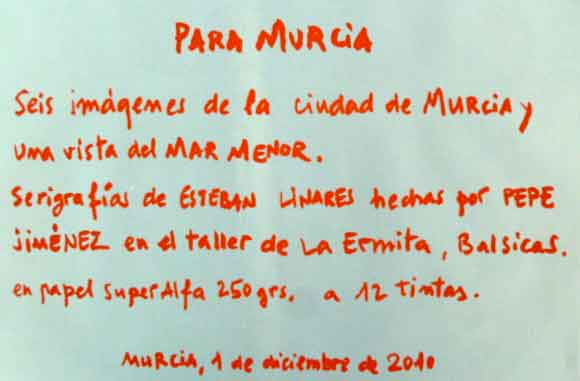 PARA MURCiA
Seis imágenes de la ciudad de MURCiA y
una vista del MAR MENOR.
Serigrafías de ESTEBAN LiNARES hechas por PEPE
JiMÉNEZ en el taller de La Ermita, Balsicas.
en papel superAlfa 250 grs. a 12 tintas.
Murcia, 1 de diciembre de 2010